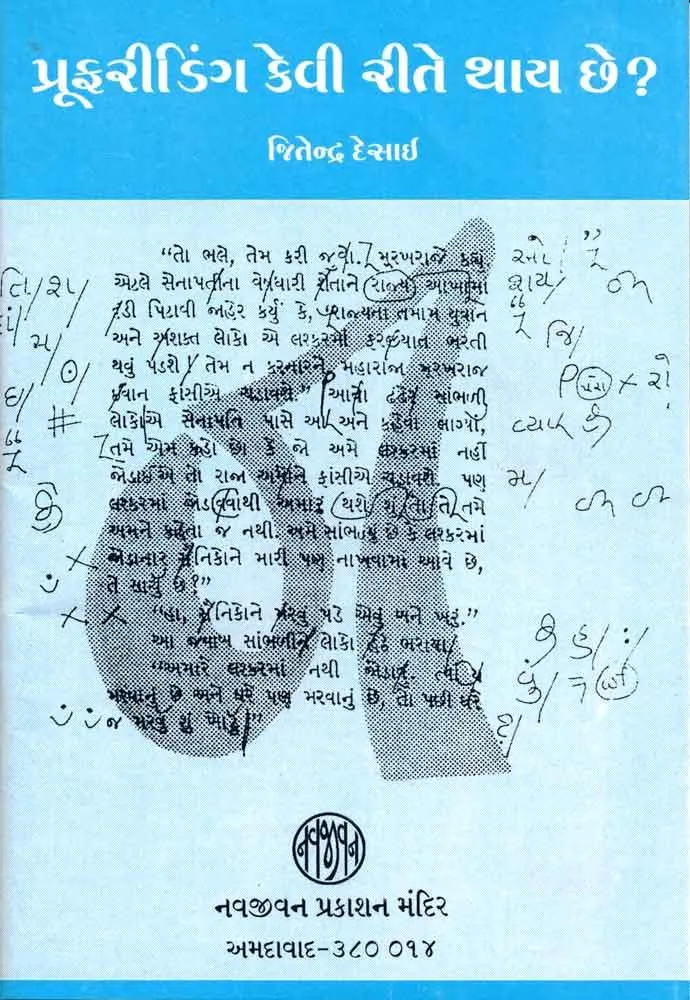 પ્રૂફરીડિંગ કેવી રીતે થાય છે?
જિતેન્દ્ર દેસાઈ
“તો ભલે, તેમ કરી જુવો. મુરખરાજે કહ્યું
એટલે સેનાપતિના વેશધારી સેતાને રાજ્ય આખામાં
દાંડી પિટાવી જાહેર કર્યું કે, રાજ્યના તમામ યુવાન
અને અશક્ત લોકો એ લશ્કરમાં ફરજિયાત ભરતી
થવું પડશે તેમ ન કરનારને મહારાજા મુરખરાજ
ફાંસીએ ચડાવશે.” આવો ઢંઢેરો સાંભળી
લોકોએ સેનાપતિ પાસે અને કહેવા લાગ્યો,
તમે એમ કહો છો કે જો અમે લશ્કરમાં નહીં
જોડાઈએ તો રાજા અમોને ફાંસીએ ચડાવશે. પણ
લશ્કરમાં અમારૂં થશે શું તો તે તમે
અમને કહેતા જ નથી. અમે સાંભળ્યું છે કે લશ્કરમાં
જોડાનાર સૈનિકોને મારી પણ નાખવામાં આવે છે,
તે સાચું છે?”
“હા, સૈનિકોને મરવું પડે એવું બને ખરૂં.”
આ જવાબ સાંભળીને લોકો હઠે ભરાયા
“અમારે લશ્કરમાં નથી જોડાવું.
મરવાનું છે અને ઘરે પણ મરવાનું છે, તો પછી ઘરે
જ મરવું શું ખોટું”
તિ/ શ/
મ/
ઇ/
#
શય/
જિ
મ/
નવજીવન
નવજીવન પ્રકાશન મંદિર
અમદાવાદ-૩૮૦ ૦૧૪